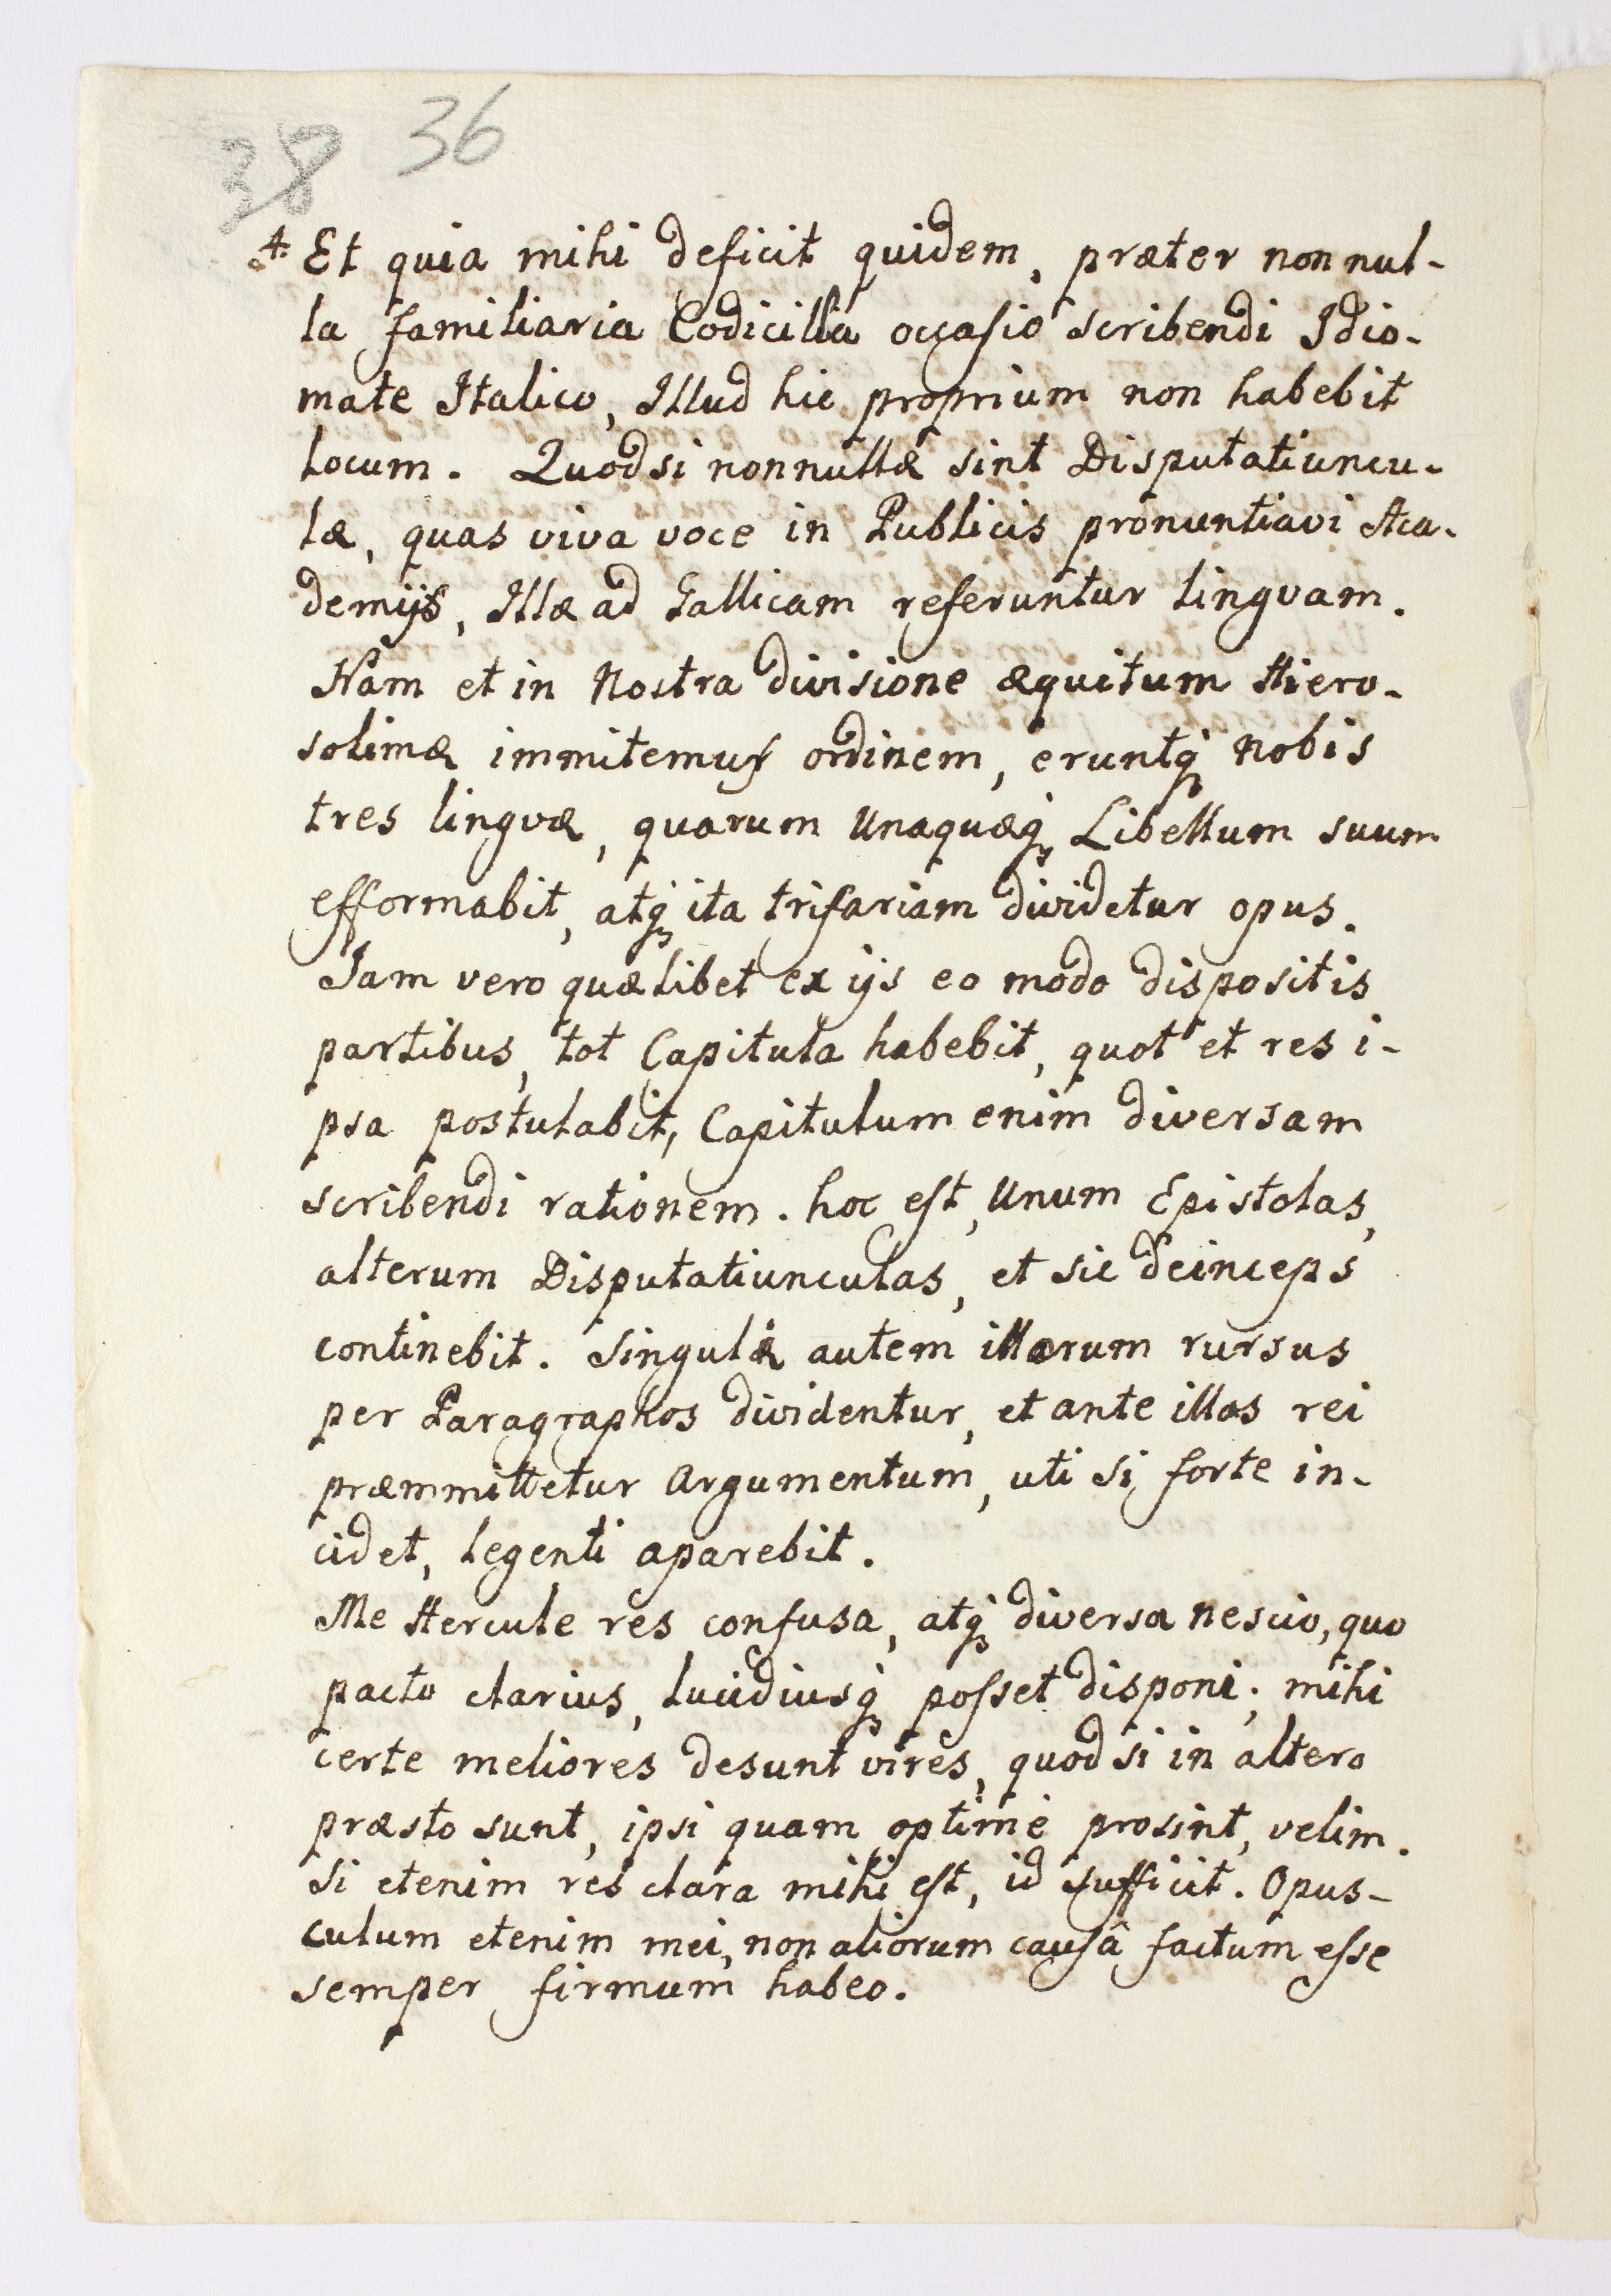 38 36
4. Et quia mihi deficit quidem, præter nonnul-
la familiaria Codicilla occasio scribendi Idio-
mate Italico, Illud hic proprium non habebit
locum. Quodsi nonnullæ sint Disputatiuncu-
læ, quas viva voce in Publicis pronuntiavi Aca-
demijs, Illæ ad Gallicam referuntur lingvam.
Nam et in Nostra divisione æquitum Hiero-
solimæ immitemur ordinem, eruntq́ȝ Nobis
tres lingvæ, quarum Unaquæq́ȝ Libellum suum
efformabit, atq́ȝ ita trifariam dividetur opus.
Iam vero quælibet ex ijs eo modo dispositis
partibus, tot Capitula habebit, quot et res i-
psa postulabit, Capitulum enim diversam
scribendi rationem. hoc est, Unum Epistolas,
alterum Disputatiunculas, et sic deinceps
continebit. Singulæ autem illarum rursus
per Paragraphos dividentur, et ante illas rei
præmmittetur Argumentum, uti si forte in-
cidet, legenti aparebit.
Me Hercule res confusa, atq́ȝ diversa nescio, quo
pacto clarius, lucidiusq́ȝ posset disponi; mihi
certe meliores desunt vires, quod si in altero
præsto sunt, ipsi quam optimè prosint, velim.
Si etenim res clara mihi est, id sufficit. Opus-
culum etenim mei, non aliorum causâ factum esse
semper firmum habeo.